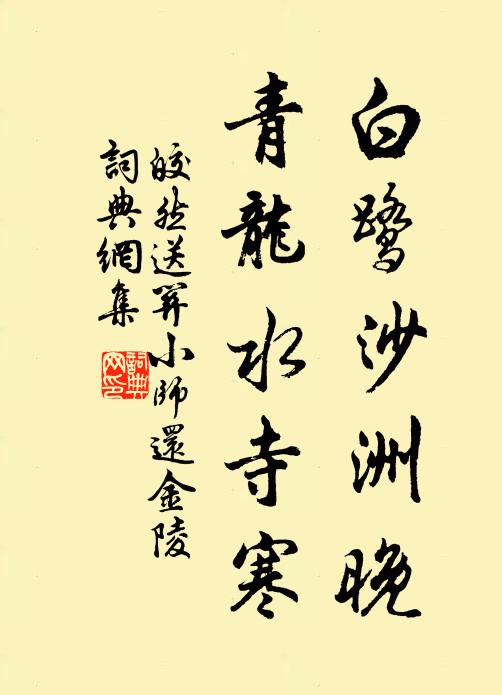 白鹭沙洲晚
青龍水寺寒
皎然送羿小師還金陵
詞典網集
詞典网印